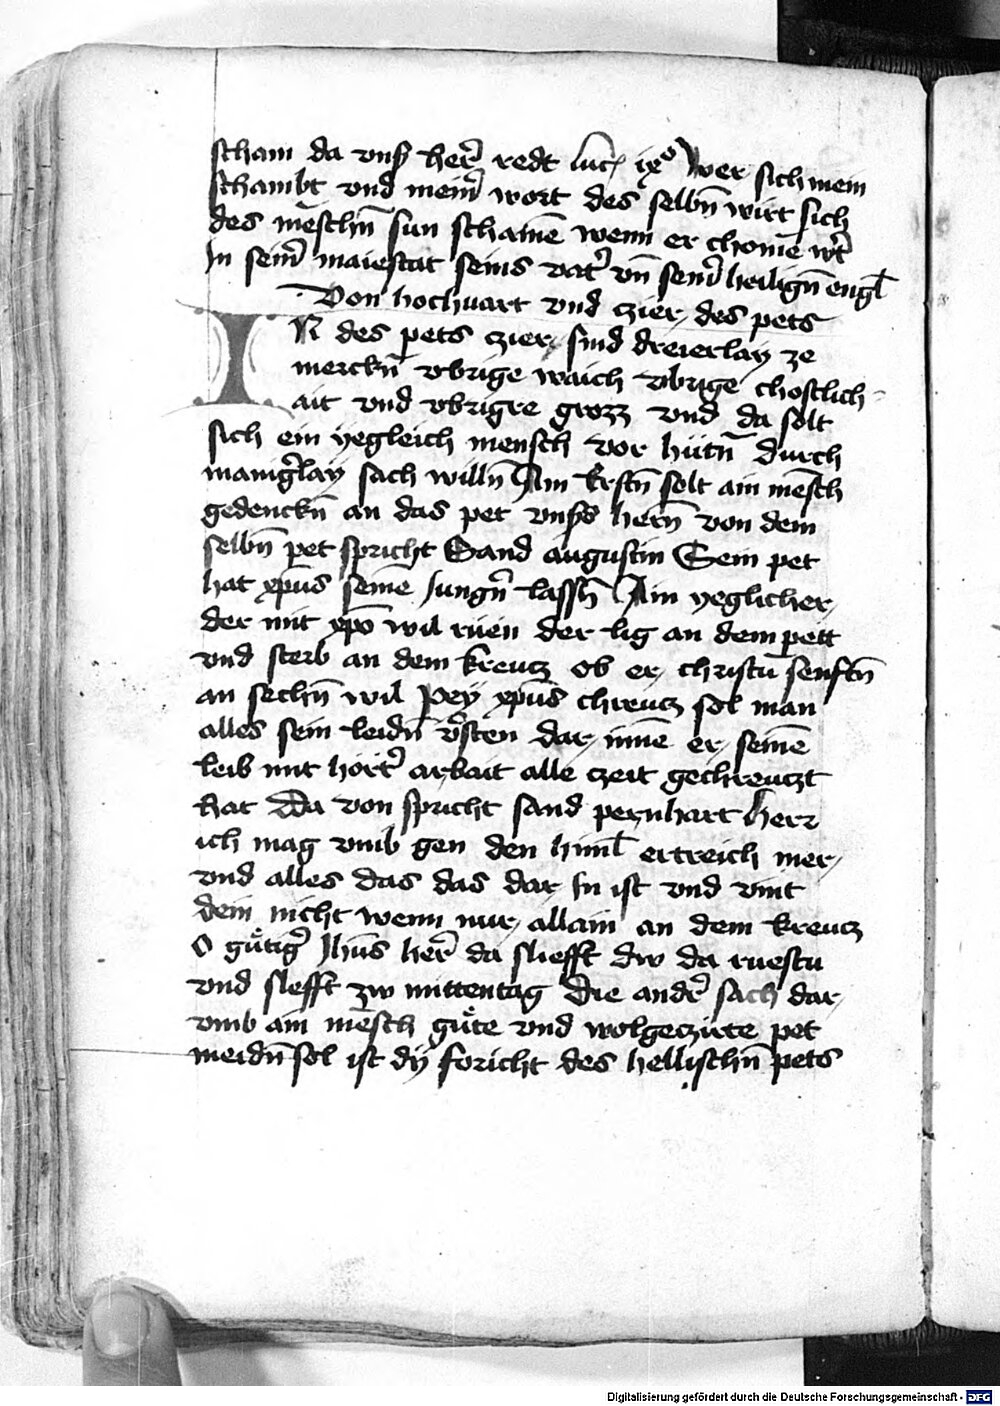 scham da vnß her̄ redt luc̄ ixo Wer sich mein
schambt vnd mein̄ wort des selbn̄ wirt sich
des mēschn̄ sun schamē wenn er chomē wt̄
In sein̄ maiestat seins vat̄ vn̄ sein̄ heilign̄ engl̄
Von hochuart vnd czier des pets
IN des pets czier sind dreierlay ze
merckn̄ vbrige waich vbrige chostlich-
ait vnd vbrigre grozz vnd da solt
sich ein yegleich mensch vor hütn̄ durch
maniḡlay sach willn̄ Am Erstn̄ solt ain mēsch
gedenckn̄ an das pet vnß̄s hern̄ von dem
selbn̄ pet spricht Sand augustin Sein pet
hat xp̄us seinē Jungn̄ lassn̄ Ain yeglicher
der mit xp̄o wil rüen der lig an dem pett
vnd sterb an dem kreutz ob er christū senftn̄
an sechn̄ wil Pey xp̄us chreutz sol man
alles sein leidn̄ vͦsten dar innē er seinē
leib mit hört̄ arbait alle czeit gechreuczt
hat Da von spricht sand pernhart Herr
ich mag vmb gen den himl̄ ertreich mer
vnd alles das das dar In ist vnd vint
dein nicht wenn nur allain an dem kreucz
O gütiḡ Jhūs her̄ da slieff​t dw da ruestu
vnd slefft zw mittentag Die andr̄ sach dar
vmb ain mēsch güte vnd wolgeczirte pet
meidn̄ sol ist dÿ foricht des hellischn̄ pets
Digitalisierung gefördert durch die Deutsche Forschungsgemeinschaft - DFG